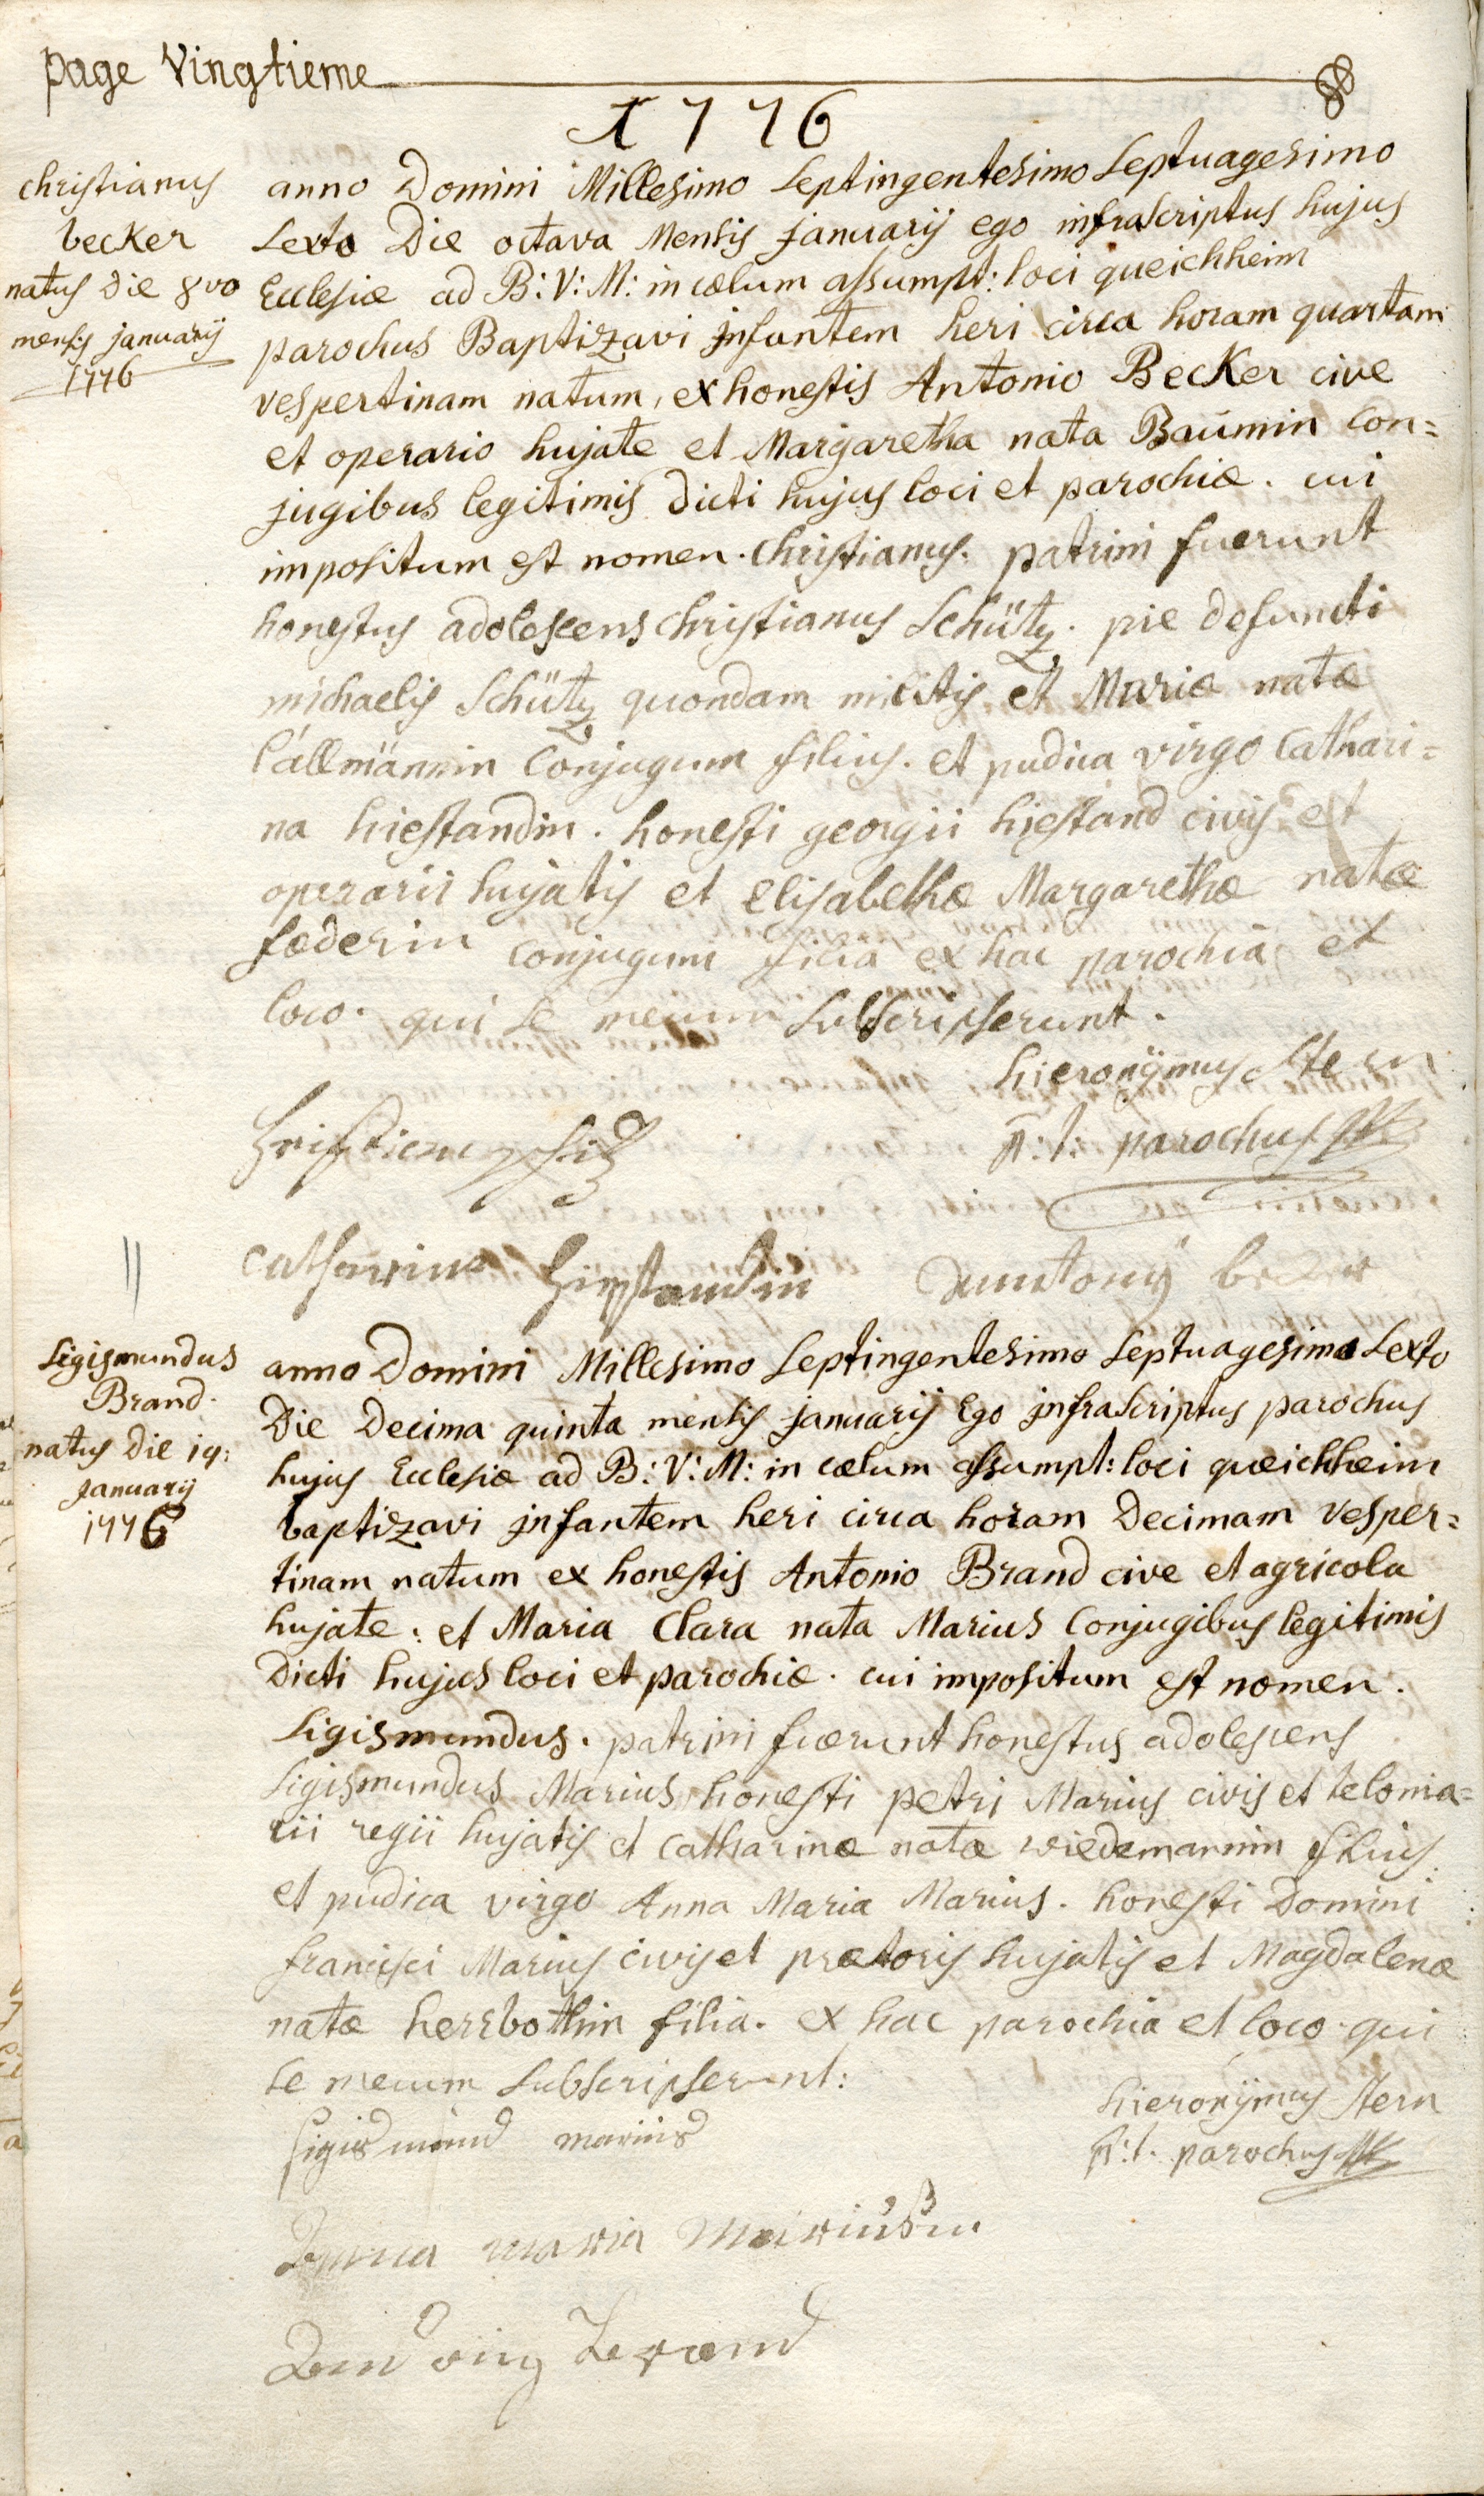 page Vingtieme
1776
christianus
becker
natus die 8vo
mensis januarij
1776
anno Domini Millesimo Septingentesimo Septuagesimo
Sexto Die octava Mensis januarij ego infrascriptus hujus
Ecclesiæ ad B: V: M: in cælum assumpt: loci queichheim
parochus Baptizavi jnfantem heri circa horam quartam
vespertinam natum, ex honestis Antonio Becker cive
et operario hujate et Margaretha nata Baúmin con=
jugibus legitimis dicti hujus loci et parochiæ. cui
impositum est nomen. Christianus. patrini fuerunt
honestus adolescens christianus Schütz. pie defuncti
michaelis Schütz quondam militis et Mariæ natæ
lállmännin Conjugum filius. et pudica virgo Cathari=
na hiestandin. honesti georgii hiestand civis et
operarii hujatis et Elisabethæ Margarethæ natæ
fæderin conjugum filia ex hac parochia et
loco. qui se mecum subscripserunt.
hieronÿmus Stern
p: t: parochus
Catharina hiestandin
anntonÿ becker
Sigismundus
Brand.
natus die 14:
januarij
1776
anno Domini Millesimo Septingentesimo Septuagesimo Sexto
Die Decima quinta mensis januarij Ego jnfrascriptus parochus
hujus Ecclesiæ ad B: V: M: in cælum assumpt: loci queichheim
baptizavi jnfantem heri circa horam Decimam vesper=
tinam natum ex honestis Antonio Brand cive et agricola
hujate: et Maria Clara nata Marius Conjugibus legitimis
Dicti hujus loci et parochiæ. cui impositum est nomen.
Sigismundus. patrini fuerunt honestus adolescens
Sigismundus Marius honesti petri Marius civis et telonia=
rii regii hujatis et Catharinæ natæ wiedemannin filius.
et pudica virgo Anna Maria Marius. honesti Domini
francisci Marius civis et prætoris hujatis et Magdalenæ
natæ herrbothin filia. ex hac parochia et loco. qui
se mecum subscripserunt:
hieronÿmus Stern
p: t. parochus
sigismund marius
Anna maria Mariusin